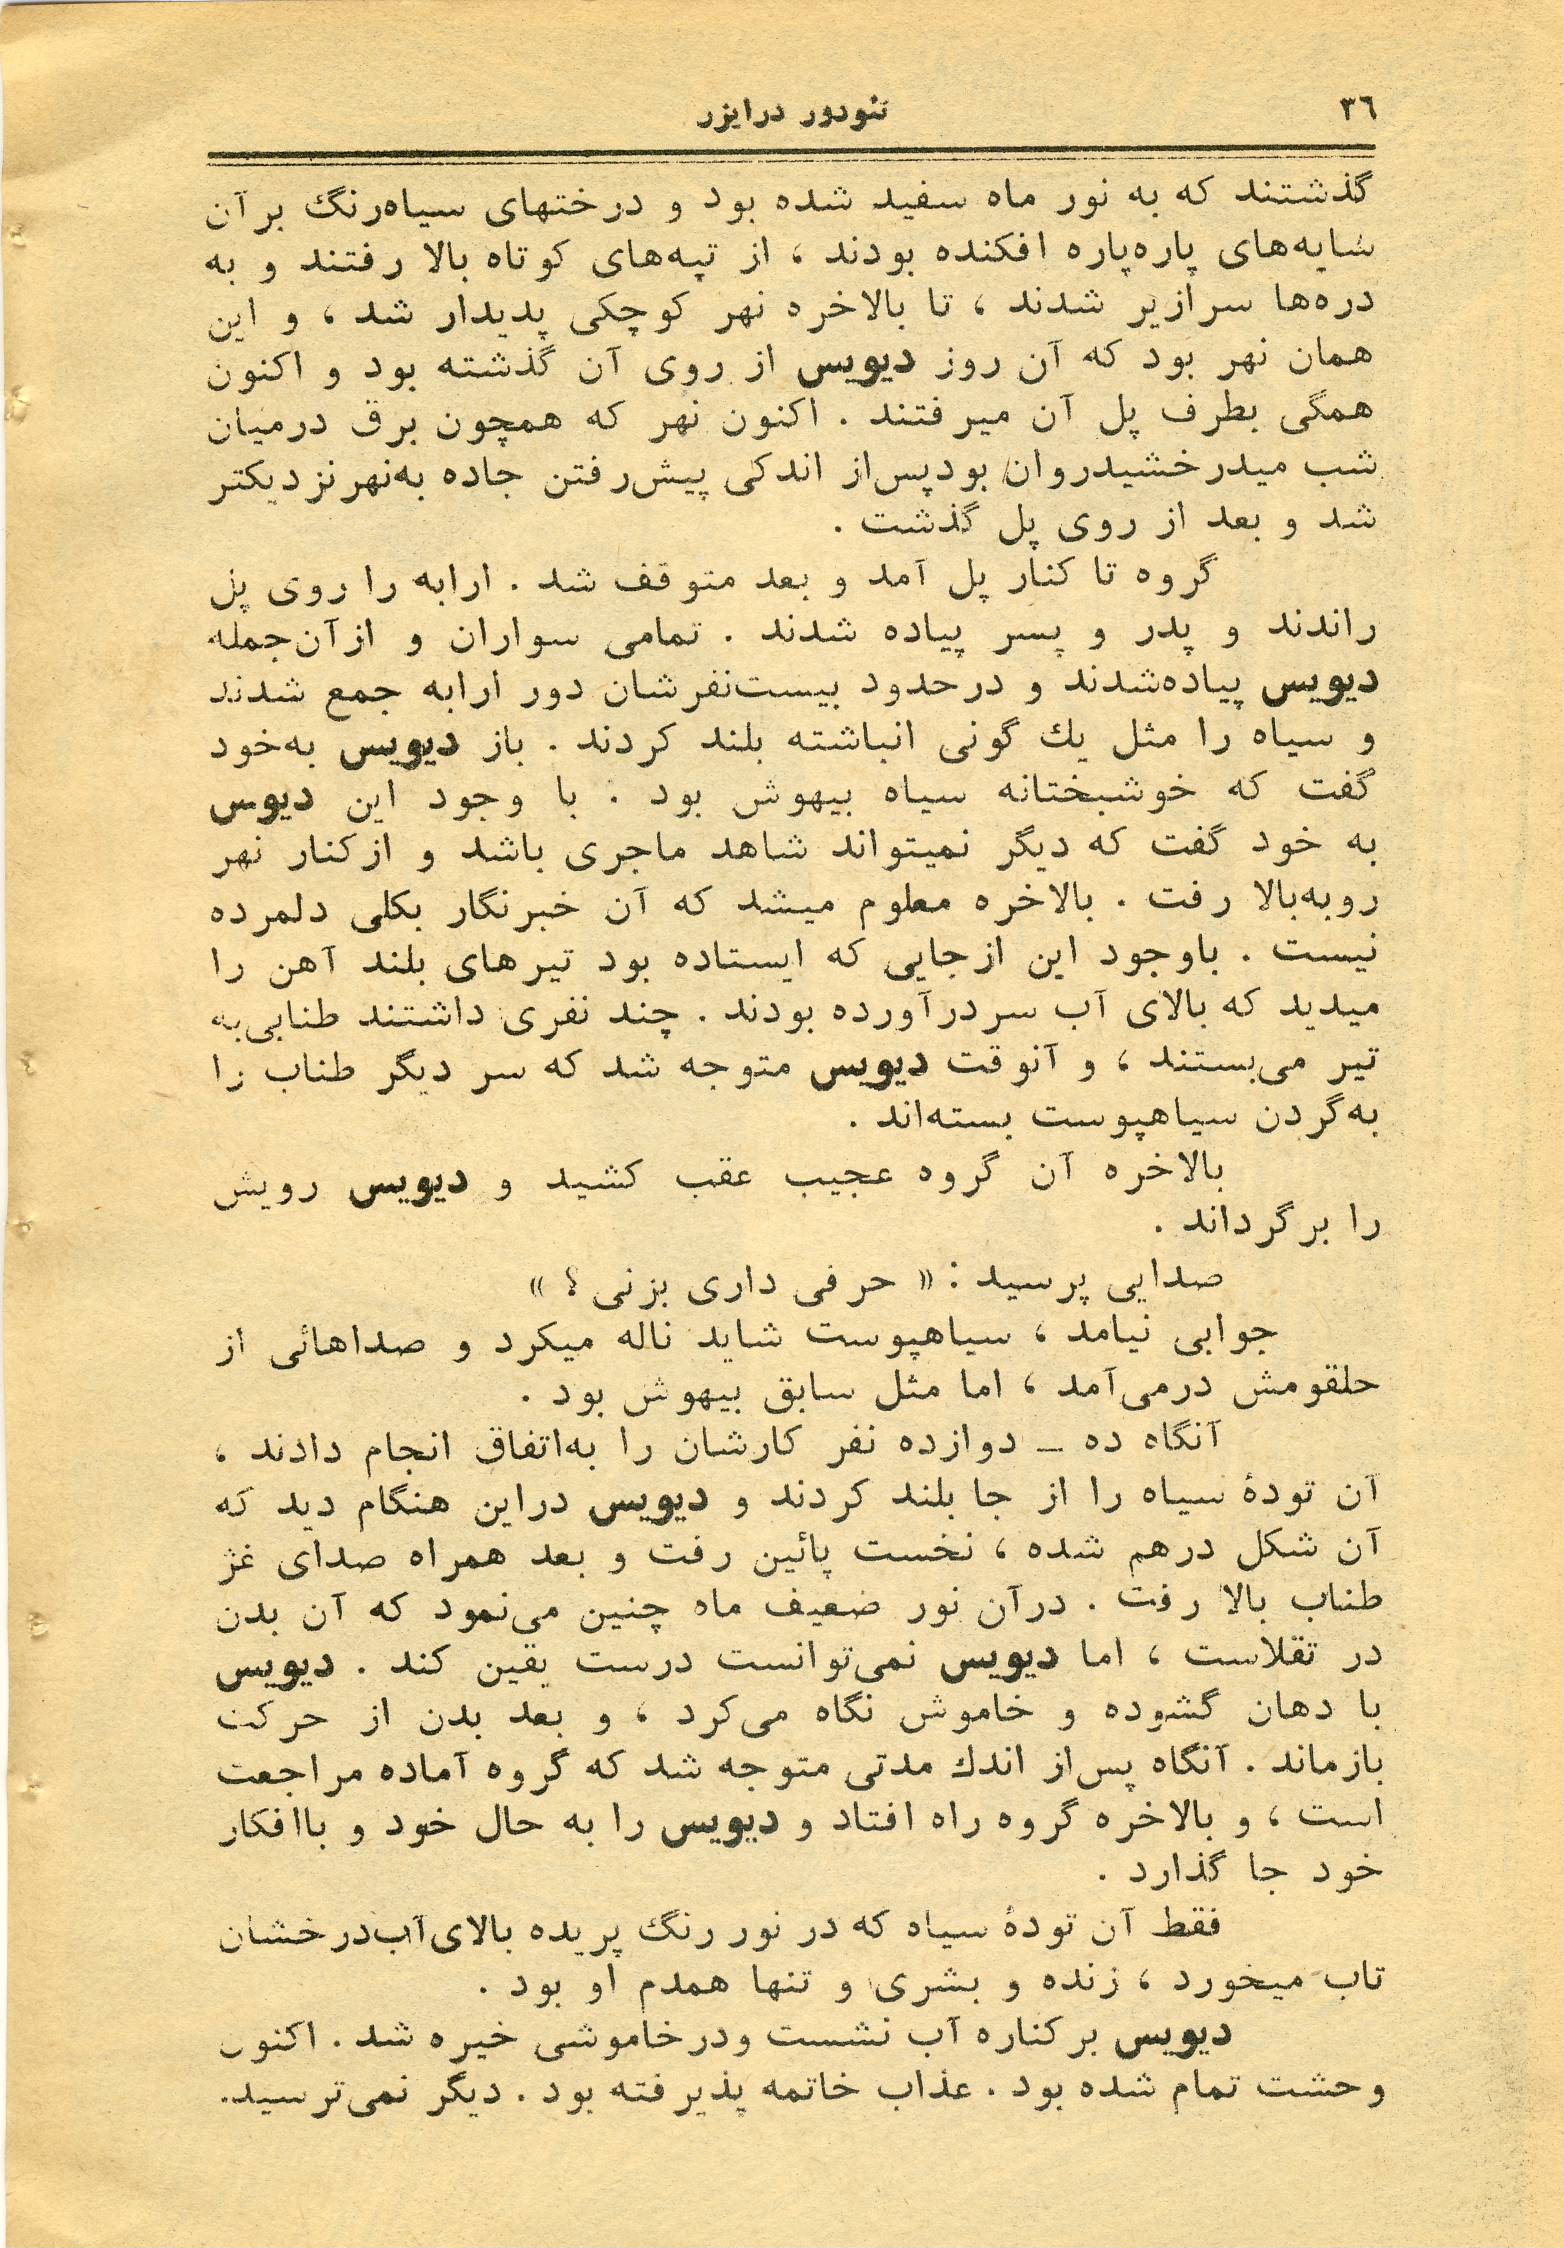 ۳٦
تئودور درایزر
گذشتند که به نور ماه سفید شده بود و درختهای سیاه‌رنگ برآن
سایه‌های پاره‌پاره افکنده بودند ، از تپه‌های کوتاه بالا رفتند و به
دره‌ها سرازیر شدند ، تا بالاخره نهر کوچکی پدیدار شد ، و این
همان نهر بود که آن روز دیویس از روی آن گذشته بود و اکنون
همگی بطرف پل آن میرفتند . اکنون نهر که همچون برق درمیان
شب میدرخشیدروان بودپس‌از اندکی پیش‌رفتن جاده به‌نهرنزدیکتر
شد و بعد از روی پل گذشت .
گروه تا کنار پل آمد و بعد متوقف شد . ارابه را روی پل
راندند و پدر و پسر پیاده شدند . تمامی سواران و ازآن‌جمله
دیویس پیاده‌شدند و درحدود بیست‌نفرشان دور ارابه جمع شدند
و سیاه را مثل یك گونی انباشته بلند کردند . باز دیویس به‌خود
گفت که خوشبختانه سیاه بیهوش بود . با وجود این دیوس
به خود گفت که دیگر نمیتواند شاهد ماجری باشد و ازکنار نهر
روبه‌بالا رفت . بالاخره معلوم میشد که آن خبرنگار بکلی دلمرده
نیست . باوجود این ازجایی که ایستاده بود تیرهای بلند آهن را
میدید که بالای آب سردرآورده بودند . چند نفری داشتند طنابی‌به
تیر می‌بستند ، و آنوقت دیویس متوجه شد که سر دیگر طناب را
به‌گردن سیاهپوست بسته‌اند .
بالاخره آن گروه عجیب عقب کشید و دیویس رویش
را برگرداند .
صدایی پرسید : « حرفی داری بزنی ؟ »
جوابی نیامد ، سیاهپوست شاید ناله میکرد و صداهائی از
حلقومش درمی‌آمد ، اما مثل سابق بیهوش بود .
آنگاه ده ـ دوازده نفر کارشان را به‌اتفاق انجام دادند ،
آن تودهٔ سیاه را از جا بلند کردند و دیویس دراین هنگام دید که
آن شکل درهم شده ، نخست پائین رفت و بعد همراه صدای غژ
طناب بالا رفت . درآن نور ضعیف ماه چنین می‌نمود که آن بدن
در تقلاست ، اما دیویس نمی‌توانست درست یقین کند . دیویس
با دهان گشوده و خاموش نگاه می‌کرد ، و بعد بدن از حرکت
بازماند . آنگاه پس‌از اندك مدتی متوجه شد که گروه آماده مراجعت
است ، و بالاخره گروه راه افتاد و دیویس را به حال خود و باافکار
خود جا گذارد .
فقط آن تودهٔ سیاه که در نور رنگ پریده بالای‌آب‌درخشان
تاب میخورد ، زنده و بشری و تنها همدم او بود .
دیویس برکناره آب نشست ودرخاموشی خیره شد . اکنون
وحشت تمام شده بود . عذاب خاتمه پذیرفته بود . دیگر نمی‌ترسید.